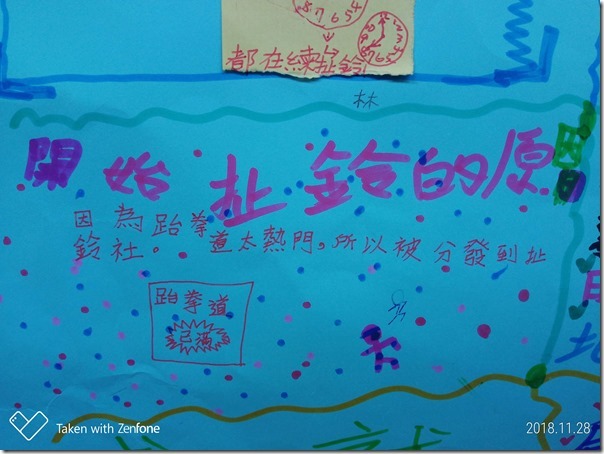 87654
都在練扯鈴!
林
開始扯鈴的原因
因為跆拳道太熱門。所以被分發到扯
鈴社。
跆拳道
已滿
Taken with Zenfone
2018.11.28